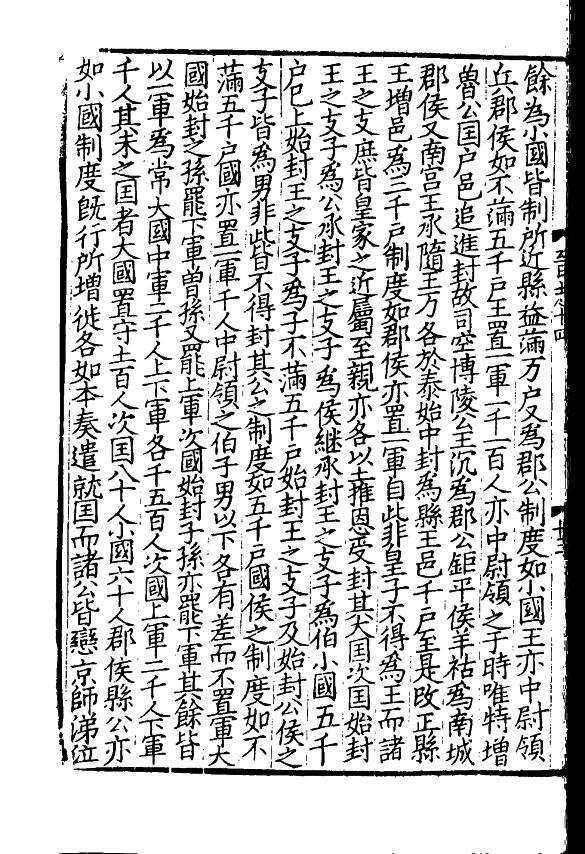 餘為小國皆制所近縣益滿万户又為郡公制度如小國王亦中尉領
兵郡侯如不滿五千户王置一軍一千一百人亦中尉領之于時唯特增
魯公国户邑追進封故司空博陵公王沉為郡公鉅平侯羊祜為南城
郡侯又南宫王承隨王万各於泰始中封為縣王邑千户至是改正縣
王增邑為三千户制度如郡侯亦置一軍自此非皇子不得為王而諸
王之支庶皆皇家之近屬至親亦各以土推恩受封其大国次国始封
王之支子為公承封王之支子為侯繼承封王之支子為伯小國五千
户巳上始封王之支子為子不滿五千户始封王之支子及始封公侯之
支子皆為男非此皆不得封其公之制度如五千户國侯之制度如不
滿五千户國亦置一軍千人中尉領之伯子男以下各有差而不置軍大
國始封之孫罷下軍曽孫又罷上軍次國始封子孫亦罷下軍其餘皆
以一軍為常大國中軍二千人上下軍各千五百人次國上軍二千人下軍
千人其未之国者大國置守土百人次国八十人小國六十人郡侯縣公亦
如小國制度旣行所增徙各如本奏遣就国而諸公皆戀京師涕泣